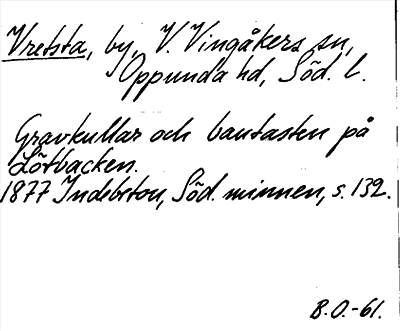 Vretsta, by, V. Vingåkers sn,
Oppunda hd, Söd. l.
Gravkullar och bautasten på
Lötbacken.
1877 Indebetou, Söd. minnen, s. 132.
B.O.-61.